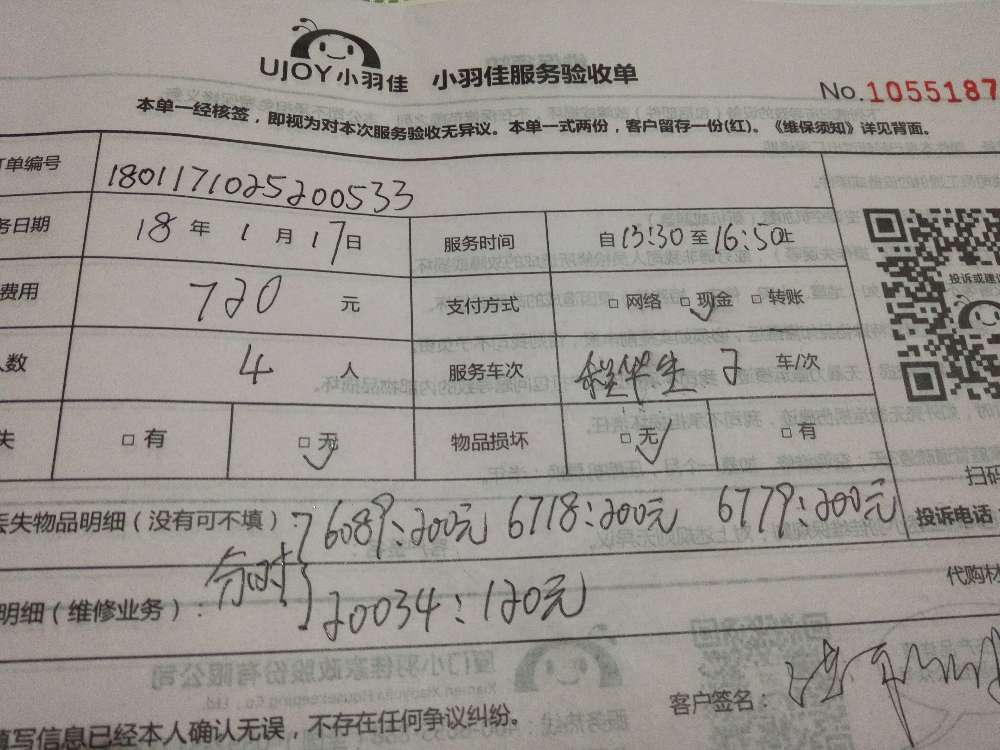 UJOY小羽佳 小羽佳服务验收单
No.1055187
本单一经核签，即视为对本次服务验收无异议。本单一式两份，客户留存一份(红)。《维保须知》详见背面。
单编号 1801171025200533
务日期 18 年 1 月 17 日 服务时间 自 13:30 至 16:50 止
费用 720 元 支付方式 □ 网络 □ 现金 □ 转账
人数 4 人 服务车次 2 车/次
失 □ 有 □ 无 物品损坏 □ 无 □ 有
投诉或建议
扫码
丢失物品明细（没有可不填）： 6089:200元 6718:200元 6779:200元
投诉电话
分时
明细（维修业务）： 20034:120元
代购材
客户签名：
填写信息已经本人确认无误，不存在任何争议纠纷。